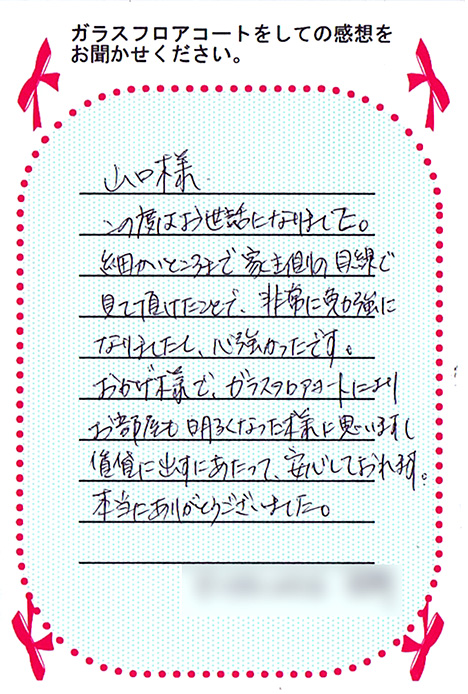 ガラスフロアコートをしての感想を
お聞かせください。
山口様
この度はお世話になりました。
細かいところまで家主側の目線で
見て頂けたことで、非常に勉強に
なりましたし、心強かったです。
おかげ様で、ガラスフロアコートにより
お部屋も明るくなった様に思いますし
賃貸に出すにあたって、安心しておれます。
本当にありがとうございました。